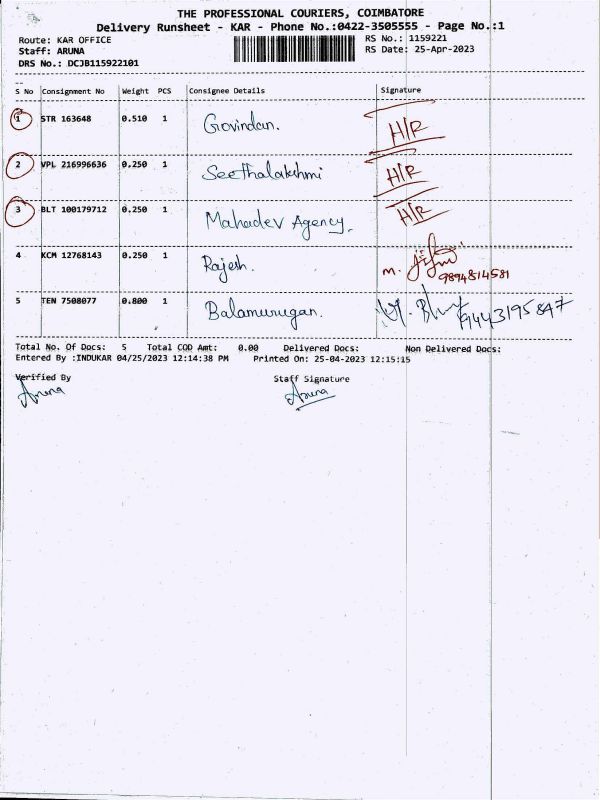 THE PROFESSIONAL COURIERS, COIMBATORE
Delivery Runsheet - KAR - Phone No.:0422-3505555 - Page No.:1
Route: KAR OFFICE RS No.: 1159221
Staff: ARUNA RS Date: 25-Apr-2023
DRS No.: DCJB115922101
S No Consignment No Weight PCS Consignee Details Signature
1 STR 163648 0.510 1 Govindan. H/R
2 VPL 216996636 0.250 1 Seethalakshmi H/R
3 BLT 100179712 0.250 1 Mahadev Agency. H/R
4 KCM 12768143 0.250 1 Rajesh. M. 9894814581
5 TEN 7508077 0.800 1 Balamurugan. 9443195847
Total No. Of Docs: 5 Total COD Amt: 0.00 Delivered Docs: Non Delivered Docs:
Entered By :INDUKAR 04/25/2023 12:14:38 PM Printed On: 25-04-2023 12:15:15
Verified By Staff Signature
Aruna Aruna